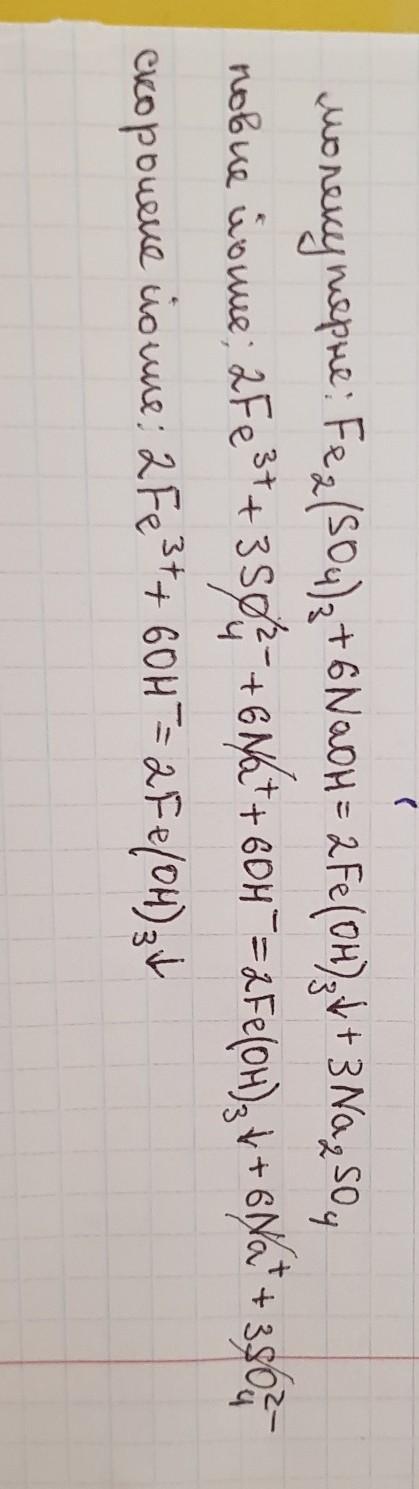 молекулярне: Fe₂(SO₄)₃ + 6NaOH = 2Fe(OH)₃↓ + 3Na₂SO₄
повне йонне: 2Fe³⁺ + 3SO₄²⁻ + 6Na⁺ + 6OH⁻ = 2Fe(OH)₃↓ + 6Na⁺ + 3SO₄²⁻
скорочене йонне: 2Fe³⁺ + 6OH⁻ = 2Fe(OH)₃↓